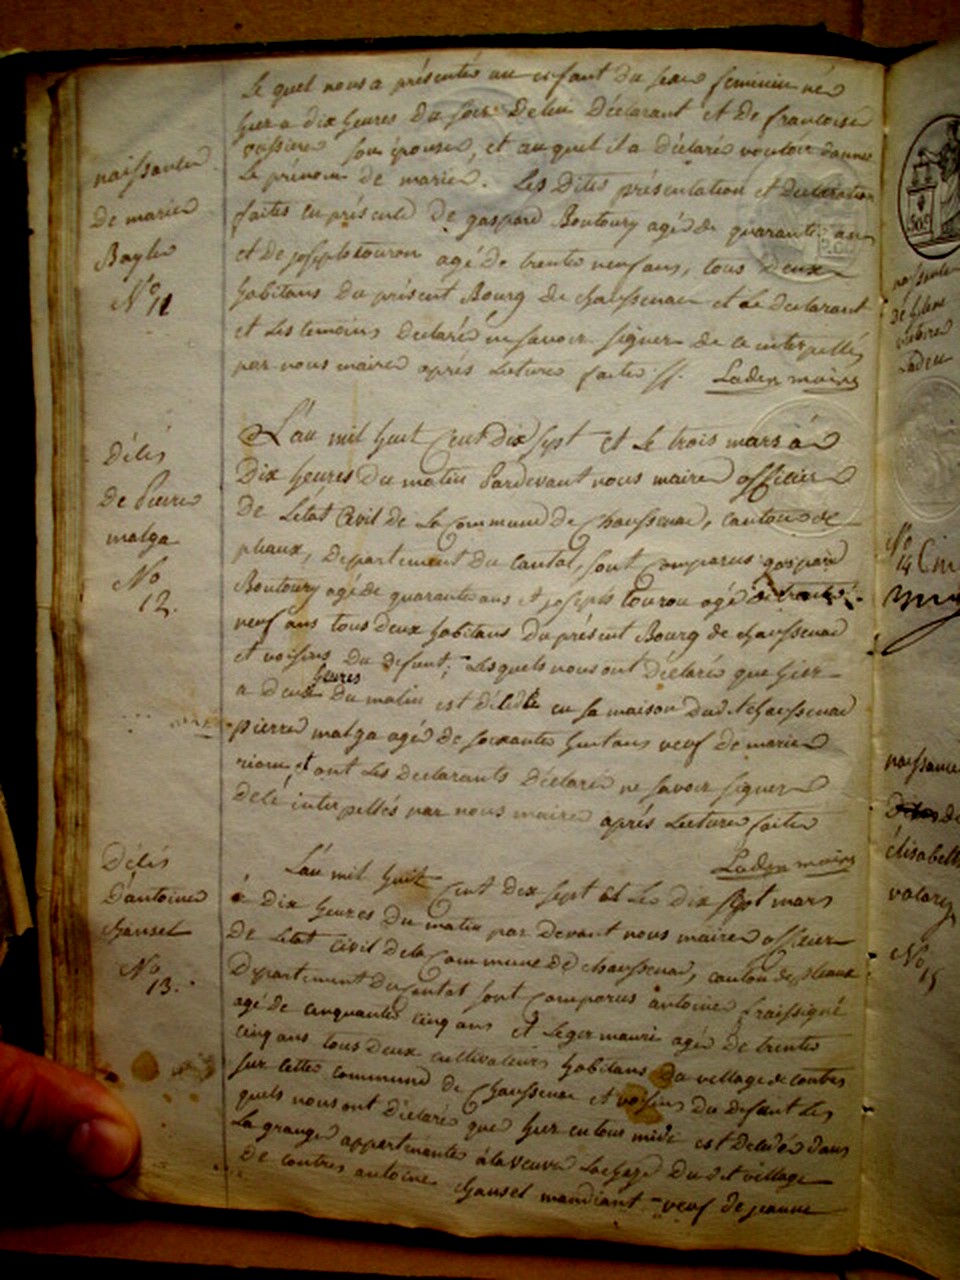 Le quel nous a présenté un enfant du sexe feminin né
hier a dix heures du soir de lui Déclarant et De francoise
vaissiere son épouse, et au quel il a déclaré vouloir donner
Le prénom de marie. Les Dites présentation et Declaration
faites en présence de gaspard Boutoury agé de quarante ans
et de joseph touron agé de trente neuf ans, tous deux
habitans du présent Bourg de chaussenac et Le Declarant
et Les temoins declaré ne savoir signer de ce interpellés
par nous maire après Lecture faite //. Laden maire
naissance
de marie
Bayle
No 11
L'an mil huit Cent Dix sept et le trois mars à
Dix heures du matin Pardevant nous maire officier
De Létat Civil de La Commune De Chaussenac, canton de
pleaux, Departement du cantal, sont Comparus gaspard
Boutoury agé de quarante ans et joseph touron agé de trente
neuf ans tous deux habitans Du présent Bourg de chaussenac
et voisins Du defunt; Lesquels nous ont déclaré que hier
a deux heures Du matin est décédé en sa maison dudit chaussenac
pierre malga agé de soixante huit ans veuf de marie
riom, et ont Les Declarants Déclaré ne savoir signer
De ce interpellés par nous maire après Lecture faite
Laden maire
Décés
de Pierre
malga
No
12.
L'an mil huit Cent Dix sept et Le dix sept mars
à Dix heures Du matin par Devant nous maire officier
De Létat Civil de la Commune De chaussenac, canton de pleaux
Departement du Cantal sont Comparus antoine fraissigné
agé de cinquante cinq ans et Leger mauri agé De trente
cinq ans tous Deux cultivateurs habitans Du village de contres
sur cette commune de Chaussenac et voisins Du defunt Les
quels nous ont déclaré que hier en tous midi est Décédé Dans
La grange appartenante à la veuve Lacheze Du dit village
De contres antoine chansel mandiant veuf de jeanne
Décés
D'antoine
chansel
No
13.
naissance
dé
No
14
naissance
de
élisabeth
valarz
No
15